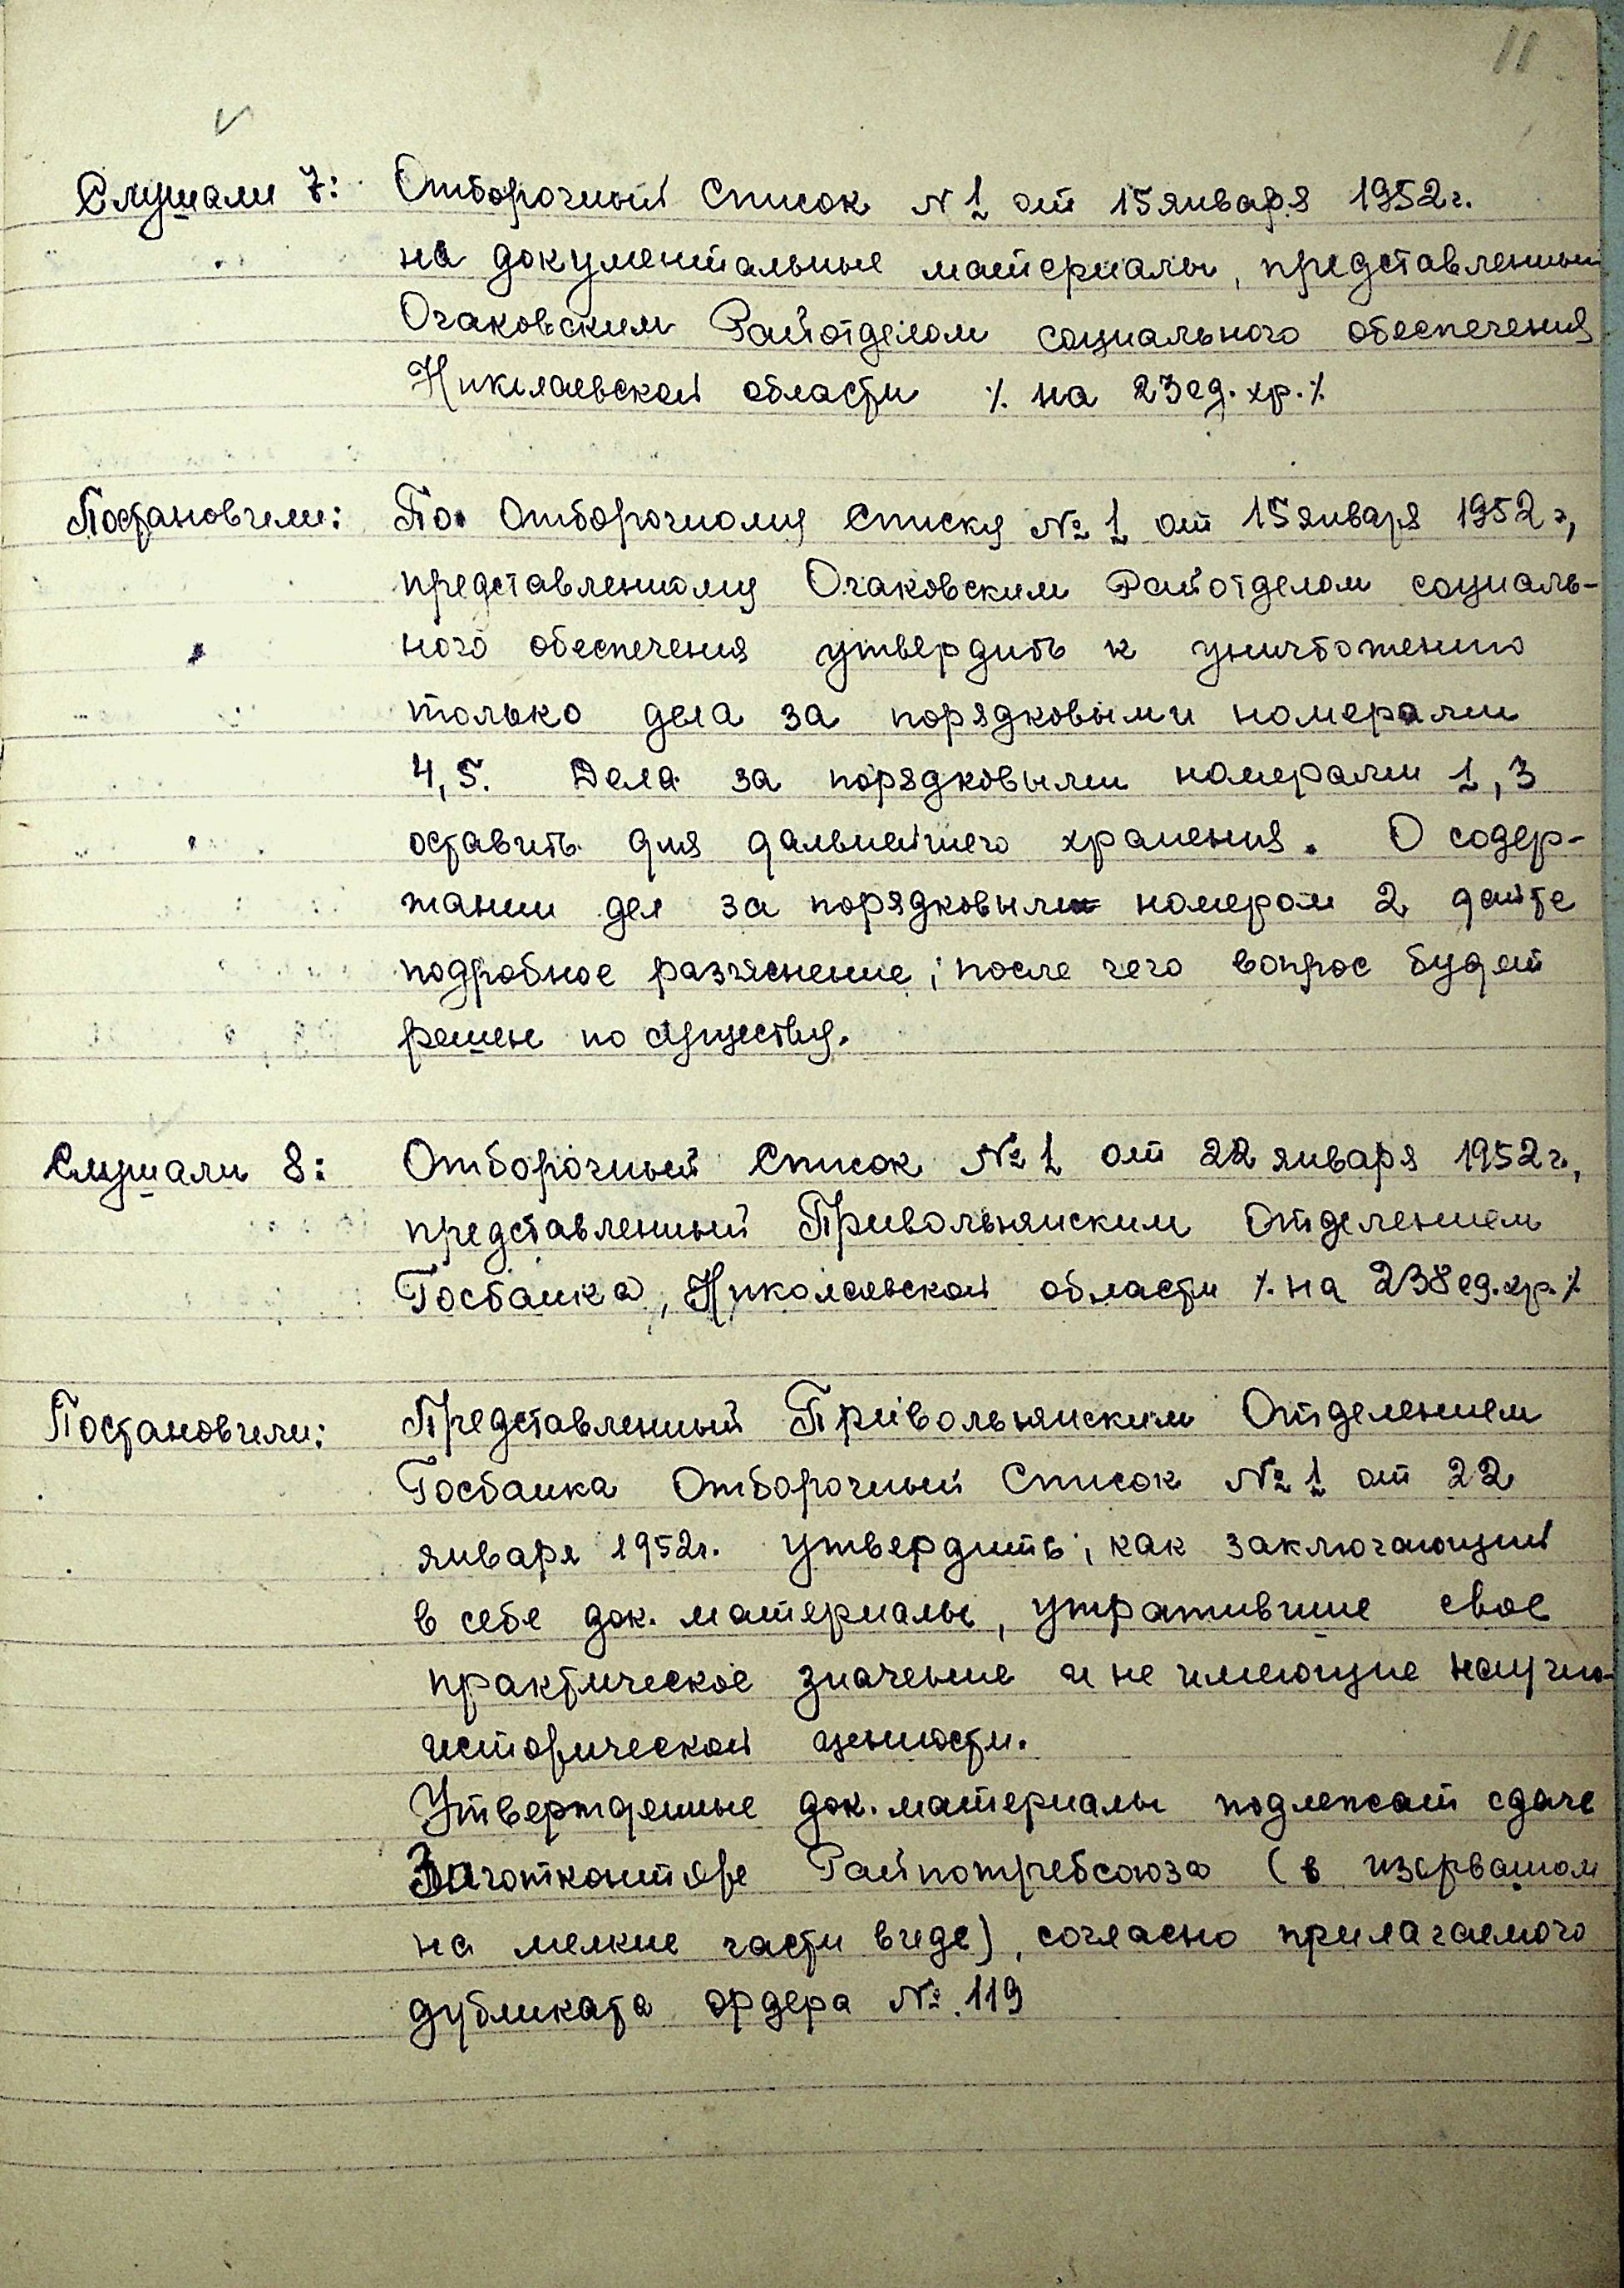 11
Слушали 7: Отборочный Список № 1 от 15 января 1952г.
на документальные материалы, представленный
Очаковским Райотделом социального обеспечения
Николаевской области ٪ на 23 ед. хр. ٪
Постановили: По Отборочному Списку № 1 от 15 января 1952 г,
представленному Очаковским Райотделом социаль-
ного обеспечения утвердить к уничтожению
только дела за порядковыми номерами
4, 5. Дела за порядковыми номерами 1, 3
оставить для дальнейшего хранения. О содер-
жании дел за порядковым номером 2 дайте
подробное разъяснение, после чего вопрос будет
решен по существу.
Слушали 8: Отборочный Список № 1 от 22 января 1952г,
представленный Привольнянским Отделением
Госбанка, Николаевской области ٪ на 238 ед. хр. ٪
Постановили: Представленный Привольнянским Отделением
Госбанка Отборочный Список № 1 от 22
января 1952г. утвердить, как заключающий
в себе док. материалы, утратившие свое
практическое значение и не имеющие научно-
исторической ценности.
Утвержденные док. материалы подлежат сдаче
Заготконторе Райпотребсоюза (в изорваном
на мелкие части виде), согласно прилагаемого
дубликата ордера № 119